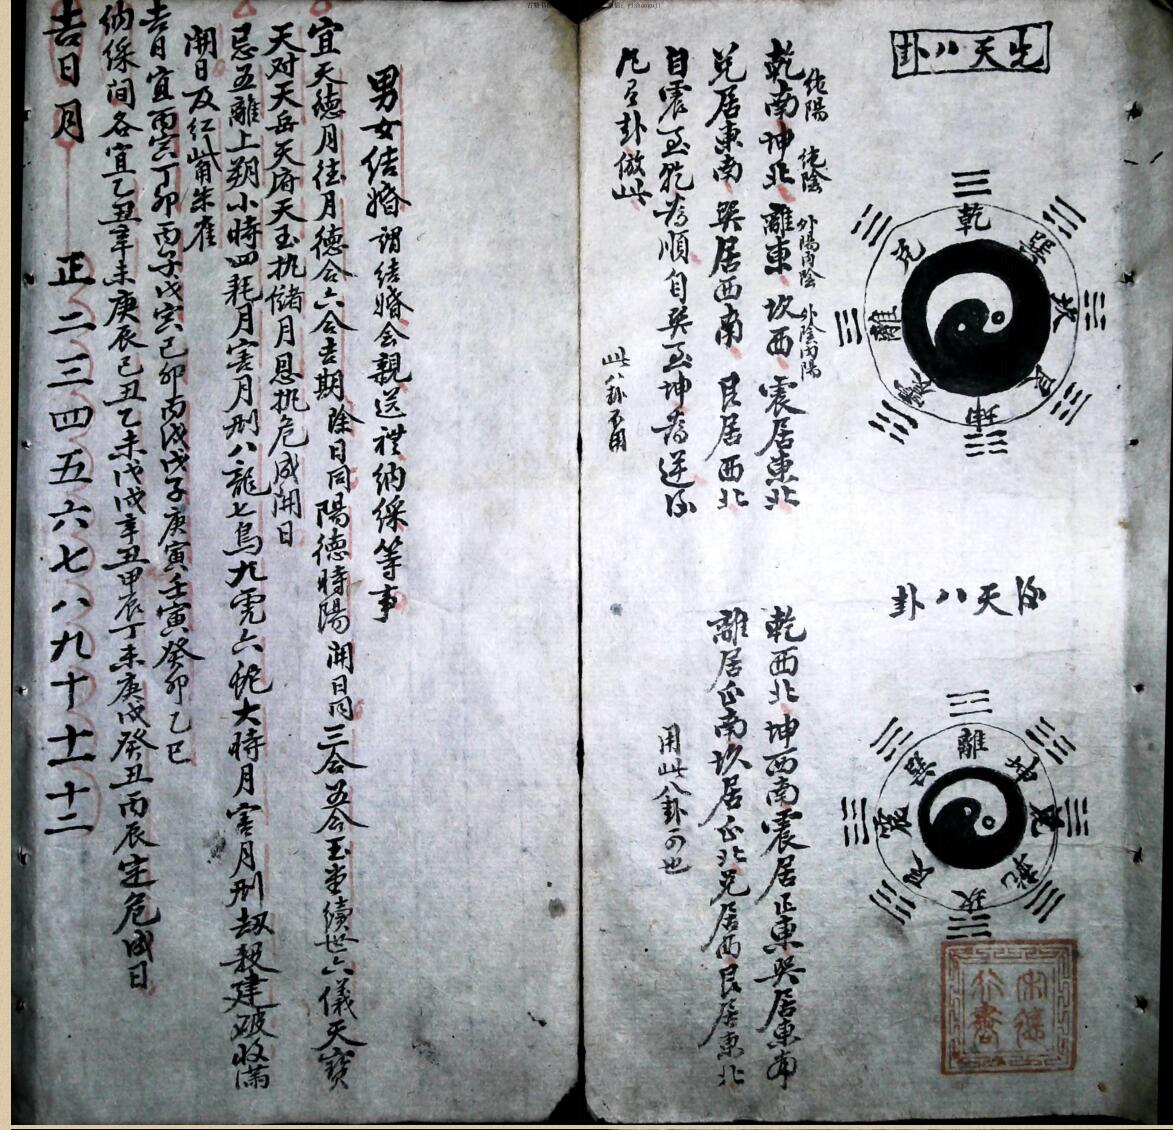 先天八卦
乾
巽
坎
艮
坤
震
離
兌
乾南坤北離東坎西震居東北
純陽 純陰 外陽內陰 外陰內陽
兌居東南巽居西南艮居西北
自震至乾為順自巽至坤為逆後
凡言卦倣此
此八卦不用
後天八卦
離
坤
兌
乾
坎
艮
震
巽
乾西北坤西南震居正東巽居東南
離居正南坎居正北兌居西艮居東北
用此八卦可也
男女結婚謂結婚會親送禮納採等事
宜天德月德月德合六合吉期除日同陽德時陽開日同三合五合玉堂續世六儀天寶
天对天岳天府天玉执儲月恩执危成開日
忌五離上朔小時四耗月害月刑八龍七鳥九虎六蛇大時月害月刑劫殺建破收滿
閉日及紅觜朱雀
吉日宜丙寅丁卯丙子戊寅己卯丙戌戊子庚寅壬寅癸卯乙巳
納採问各宜乙丑辛未庚辰己丑乙未戊戌辛丑甲辰丁未庚戌癸丑丙辰定危成日
吉日月 正二三四五六七八九十十一十二